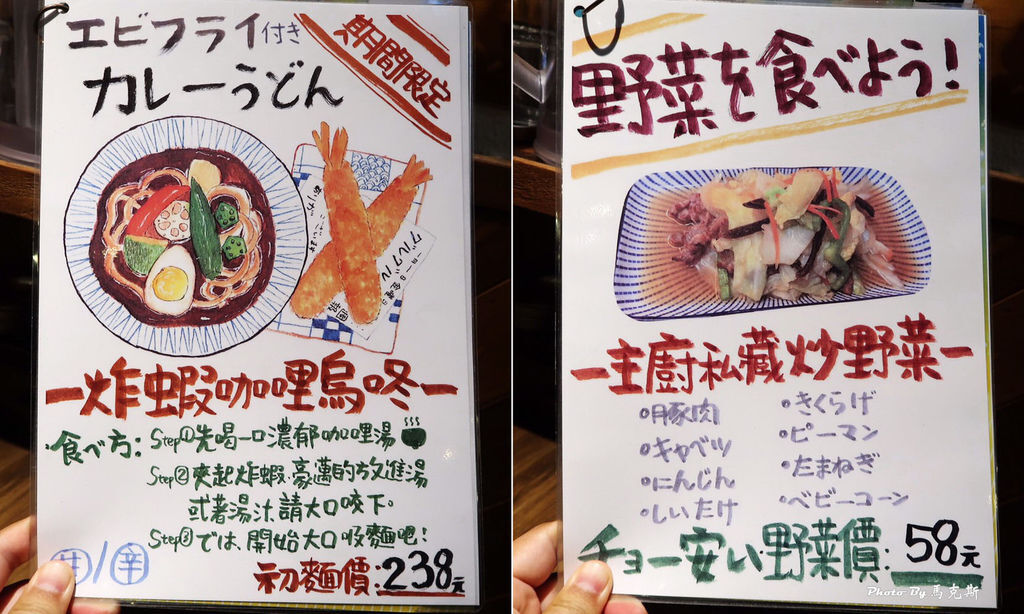 エビフライ付き
カレーうどん
期間限定
ー炸蝦咖哩烏咚ー
食べ方:Step①先喝一口濃郁咖哩湯
Step②夾起炸蝦,豪邁的放進湯
或著湯汁,請大口咬下。
Step③では、開始大口吸麵吧!
牛/辛
初麵價:238元
野菜を食べよう!
ー主廚私藏炒野菜ー
豚肉
キャベツ
にんじん
しいたけ
きくらげ
ピーマン
たまねぎ
ベビーコーン
チョー安い野菜價:58元
Photo By 馬克斯